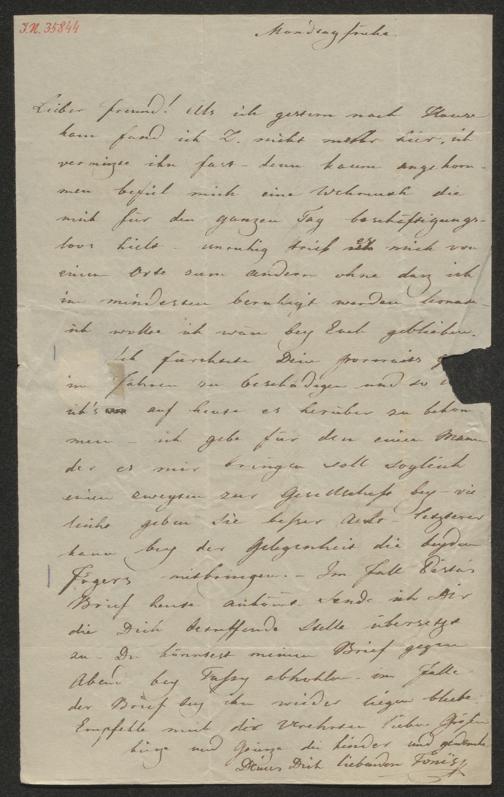 I.N. 35844
Montag frühe
Lieber Freund! Als ich gestern nach Hause
kam fand ich Z. nicht mehr hier, ich
vermisse ihn fast - denn kaum angekom-
men befiel mich eine Wehmuth die
mich für den ganzen Tag beschäftigungs-
loos hielt - unruhig trieb es mich von
einem Orte zum andern ohne daß ich
im mindesten beruhigt werden konnte
ich wollte ich wäre bey Euch geblieben.
Ich fürchtete Dein portrait
im Fahren zu beschädigen und so
ich's auf heute es herüber zu bekom
men - ich gebe für den einen Mann
der es mir bringen soll sogleich
einen zweyten zur Gesellschaft bey - viel
leicht geben Sie besser acht - letzterer
kann bey der Gelegenheit die beyden
mitbringen. - Im Fall
Brief heute ankömt sende ich Dir
die Dich betreffende Stelle übersetzt
zu - Du könntest meinen Brief gegen
Abend bey abhohlen - im Falle
der Brief bey ihm wieder liegen bliebe
Empfehle mich der Verehrten lieben
und Grüsse die Kinder und gedenke
Deines Dich liebenden